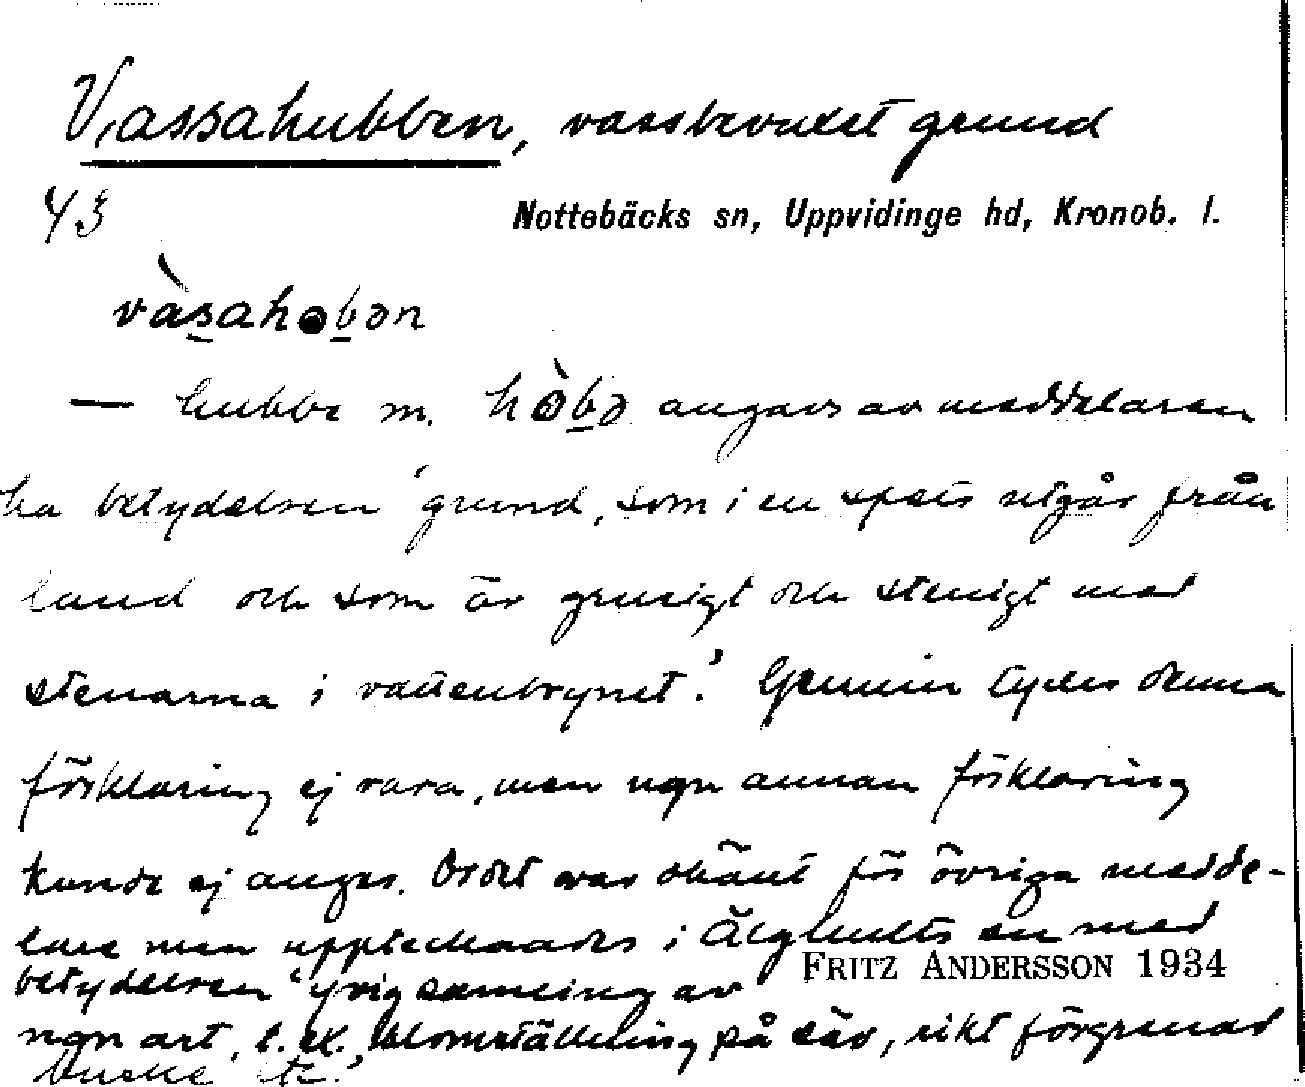 Vassahubben, vassbevuxet grund
43
Nottebäcks sn, Uppvidinge hd, Kronob. l.
vàsahobən
— hubbe m. hòbə angavs av meddelaren
ha betydelsen 'grund, som i en spets utgår från
land och som är grusigt och stenigt med
stenarna i vattenbrynet'. Genuin tycks denna
förklaring ej vara, men ngn annan förklaring
kunde ej anges. Ordet var okänt för övriga medde-
lare men upptecknades i Älghults sn med
betydelsen 'yvig samling av
FRITZ ANDERSSON 1934
ngn art, t. ex. blomställning på säv, rikt förgrenad
buske etc.'